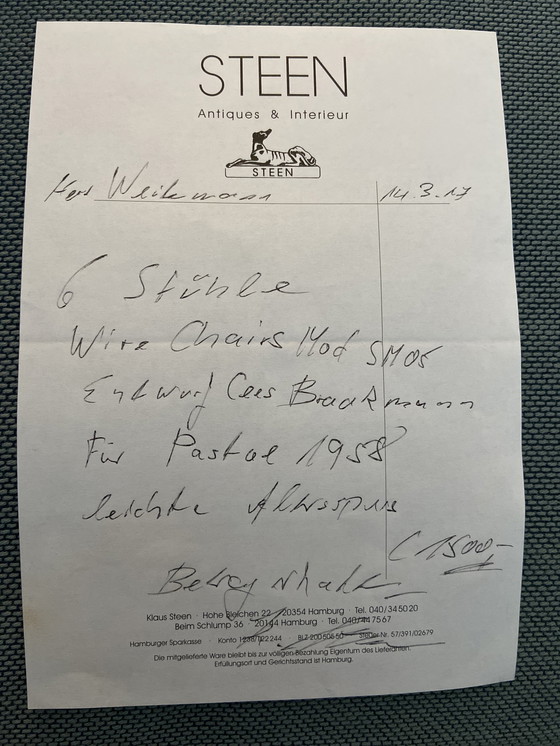 STEEN
Antiques & Interieur
STEEN
Herr Weikmann 14.3.17
6 Stühle
Wire Chairs Mod SM05
Entwurf Cees Braakmann
Für Pastoe 1958
leichte Altersspur
€ 1500-
Betrag erhalten
Klaus Steen · Hohe Bleichen 22 · 20354 Hamburg · Tel. 040/345020
Beim Schlump 36 · 20144 Hamburg · Tel. 040/447567
Hamburger Sparkasse · Konto 1238/122244 BLZ 20050550 · Steuer Nr. 57/391/02679
Die mitgelieferte Ware bleibt bis zur völligen Bezahlung Eigentum des Lieferanten.
Erfüllungsort und Gerichtsstand ist Hamburg.